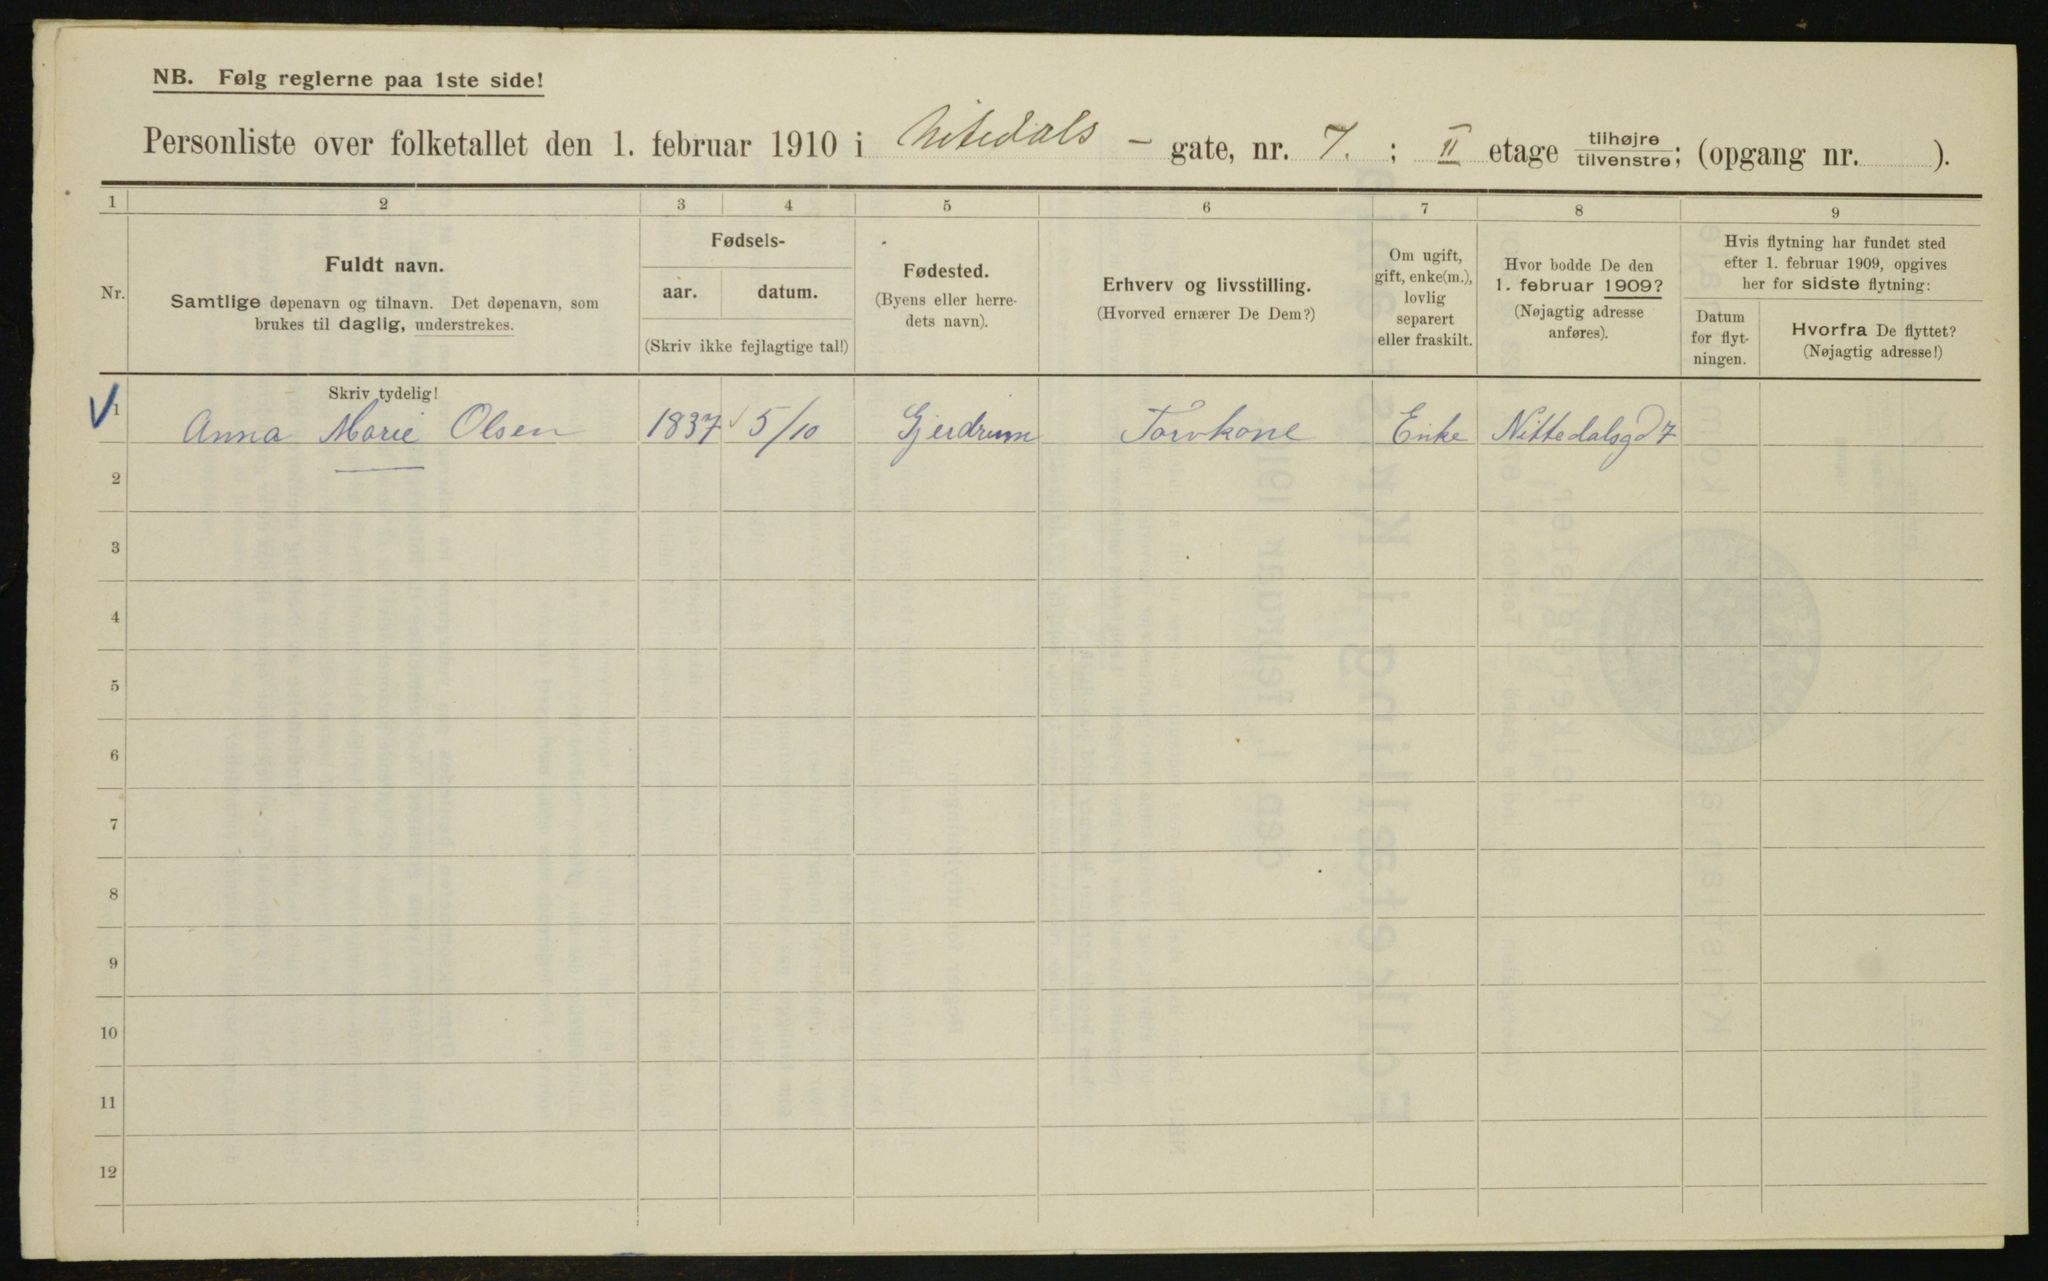 NB. Følg reglerne paa 1ste side!
Personliste over folketallet den 1. februar 1910 i Nitedals - gate, nr. 7. ; II etage tilhøjre/tilvenstre; (opgang nr. ).
1 2 3 4 5 6 7 8 9
Nr.
Fuldt navn.
Samtlige døpenavn og tilnavn. Det døpenavn, som
brukes til daglig, understrekes.
Fødsels-
aar. datum.
(Skriv ikke fejlagtige tal!)
Fødested.
(Byens eller herre-
dets navn).
Erhverv og livsstilling.
(Hvorved ernærer De Dem?)
Om ugift,
gift, enke(m.),
lovlig
separert
eller fraskilt.
Hvor bodde De den
1. februar 1909?
(Nøjagtig adresse
anføres).
Hvis flytning har fundet sted
efter 1. februar 1909, opgives
her for sidste flytning:
Datum
for flyt-
ningen.
Hvorfra De flyttet?
(Nøjagtig adresse!)
Skriv tydelig!
1 Anna Marie Olsen 1837 5/10 Gjerdrum Torvkone Enke Nittedalsgd 7
2
3
4
5
6
7
8
9
10
11
12